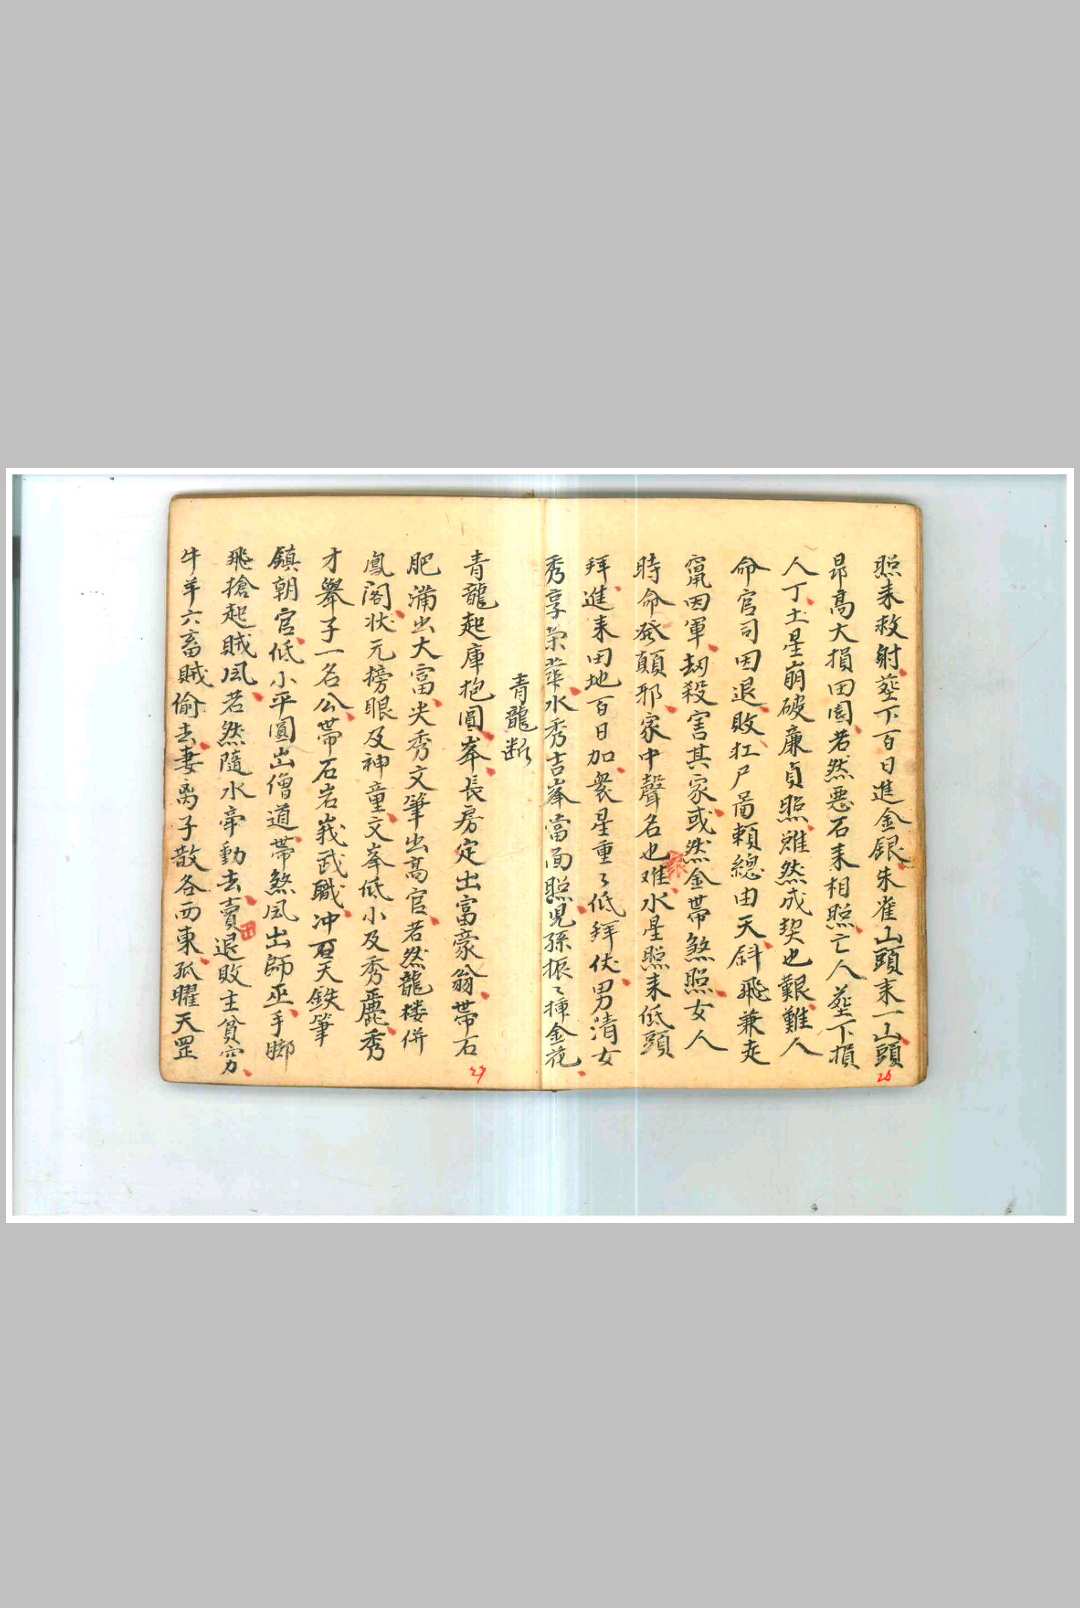 照来救射葬下百日進金銀朱雀山頭来一山頭
昂高大損田園若然惡石来相照亡人葬下損
人丁土星崩破廉貞照雖然成契也艱難人
命官司因退敗扛尸啚賴總由天斜飛兼走
竄因軍劫殺害其家或然金帶煞照女人
時命發顛邪家中聲名也难水星照来低頭
拜進来田地百日加衆星重々低拜伏男清女
秀享荣華水秀吉峯當面照児孫振々揷金花
青龍断
青龍起庫抱圓峯長房定出富豪翁帶石
肥滿出大富尖秀文筆出高官若然龍楼併
鳳阁状元榜眼及神童文峯低小及秀麗秀
才舉子一名公帶石岩峩武職冲石天鉄筆
鎮朝官低小平圓出僧道帶煞風出師巫手脚
飛搶起賊風若然隨水牵動去賣退敗主貧穷
牛羊六畜賊偷去妻离子散各西東孤曜天罡
26
27